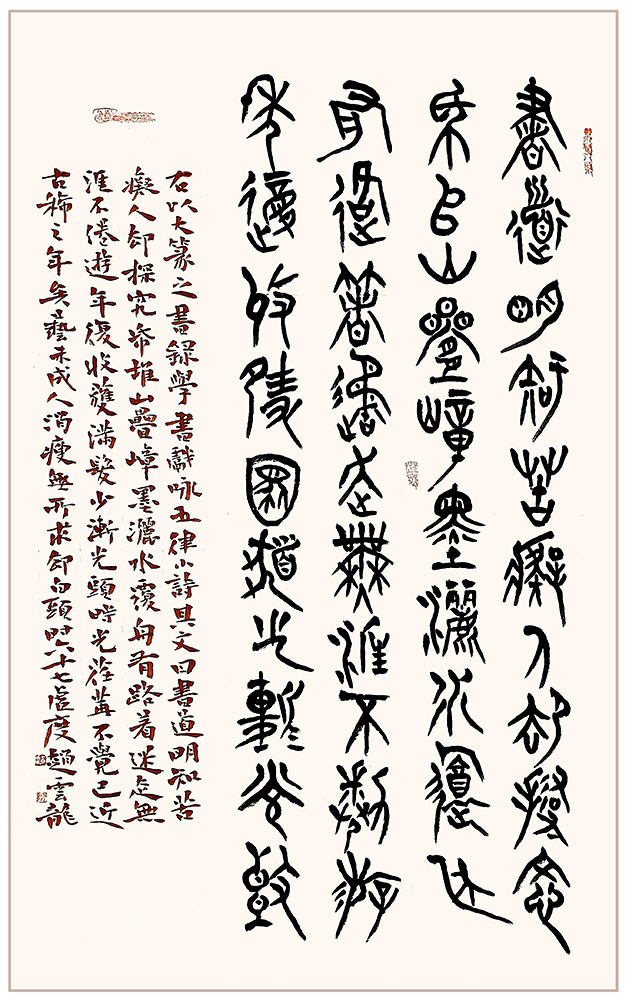 書道明知苦癡人却探究
帋堆山疊嶂墨灑水覆舟
有路着迷走無涯不倦遊
年復收穫滿髮少漸光頭
右以大篆之書錄學書戲咏五律小詩其文曰書道明知苦
癡人却探究帋堆山疊嶂墨灑水覆舟有路着迷走無
涯不倦遊年復收穫滿髮少漸光頭時光荏苒不覺已近
古稀之年矣藝未成人消瘦無所求却白頭時六十七虛度趙雲龍